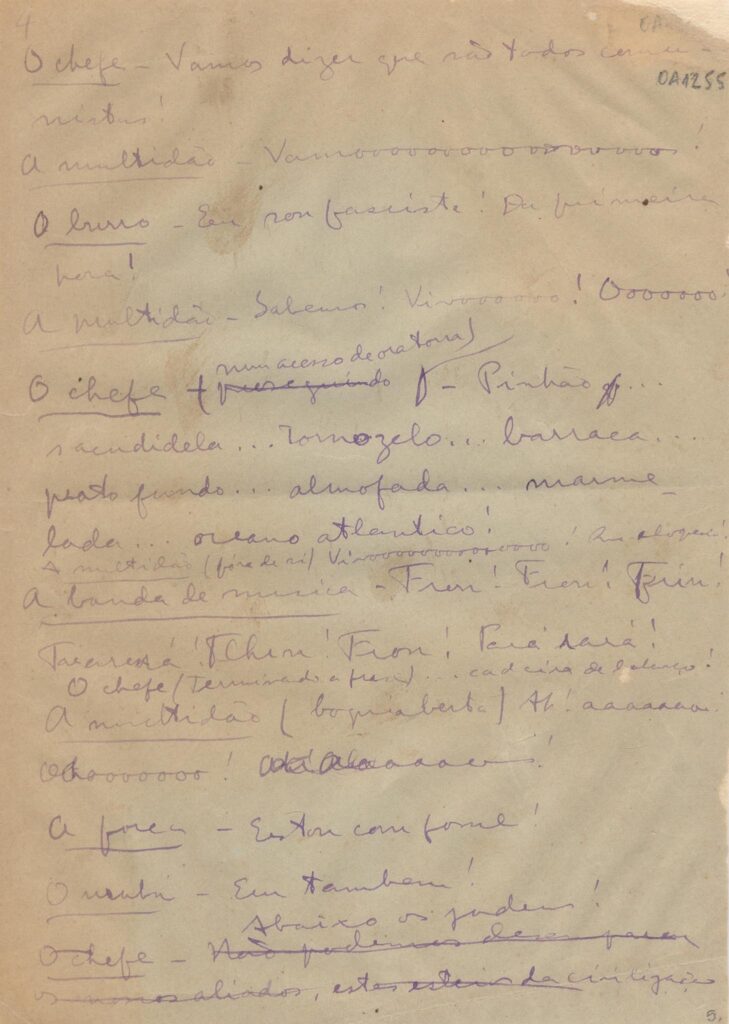 4
OA1255
O chefe – Vamos dizer que são todos comu-
nistas!
A multidão – Vamooooooooooooooooooo!
O burro – Eu sou fascista! Da primeira
hora!
A multidão – Sabemos! Vivoooooo! Ooooooo!
num acesso de oratoria)
O chefe ( perseguindo – Pinhão...
sacudidela... Tornozelo... barraca...
prato fundo... almofada... marme-
lada... oceano atlantico!
A multidão (fóra de si) Vivoooooooooooooo! Que eloquencia!
A banda de musica – Fron! Fron! Frin!
Tchin! Fron! Pará
O chefe (terminando a frase)... cadeira de balanço!
A multidão (boquiaberta) Ah! aaaaaaa!
Ohooooooo! aaaaaa!
A forca – Estou com fome!
O urubú – Eu tambem!
Abaixo os judeus!
O chefe – Não podemos desamparar
os nossos aliados, estes esteios da civilização
5.